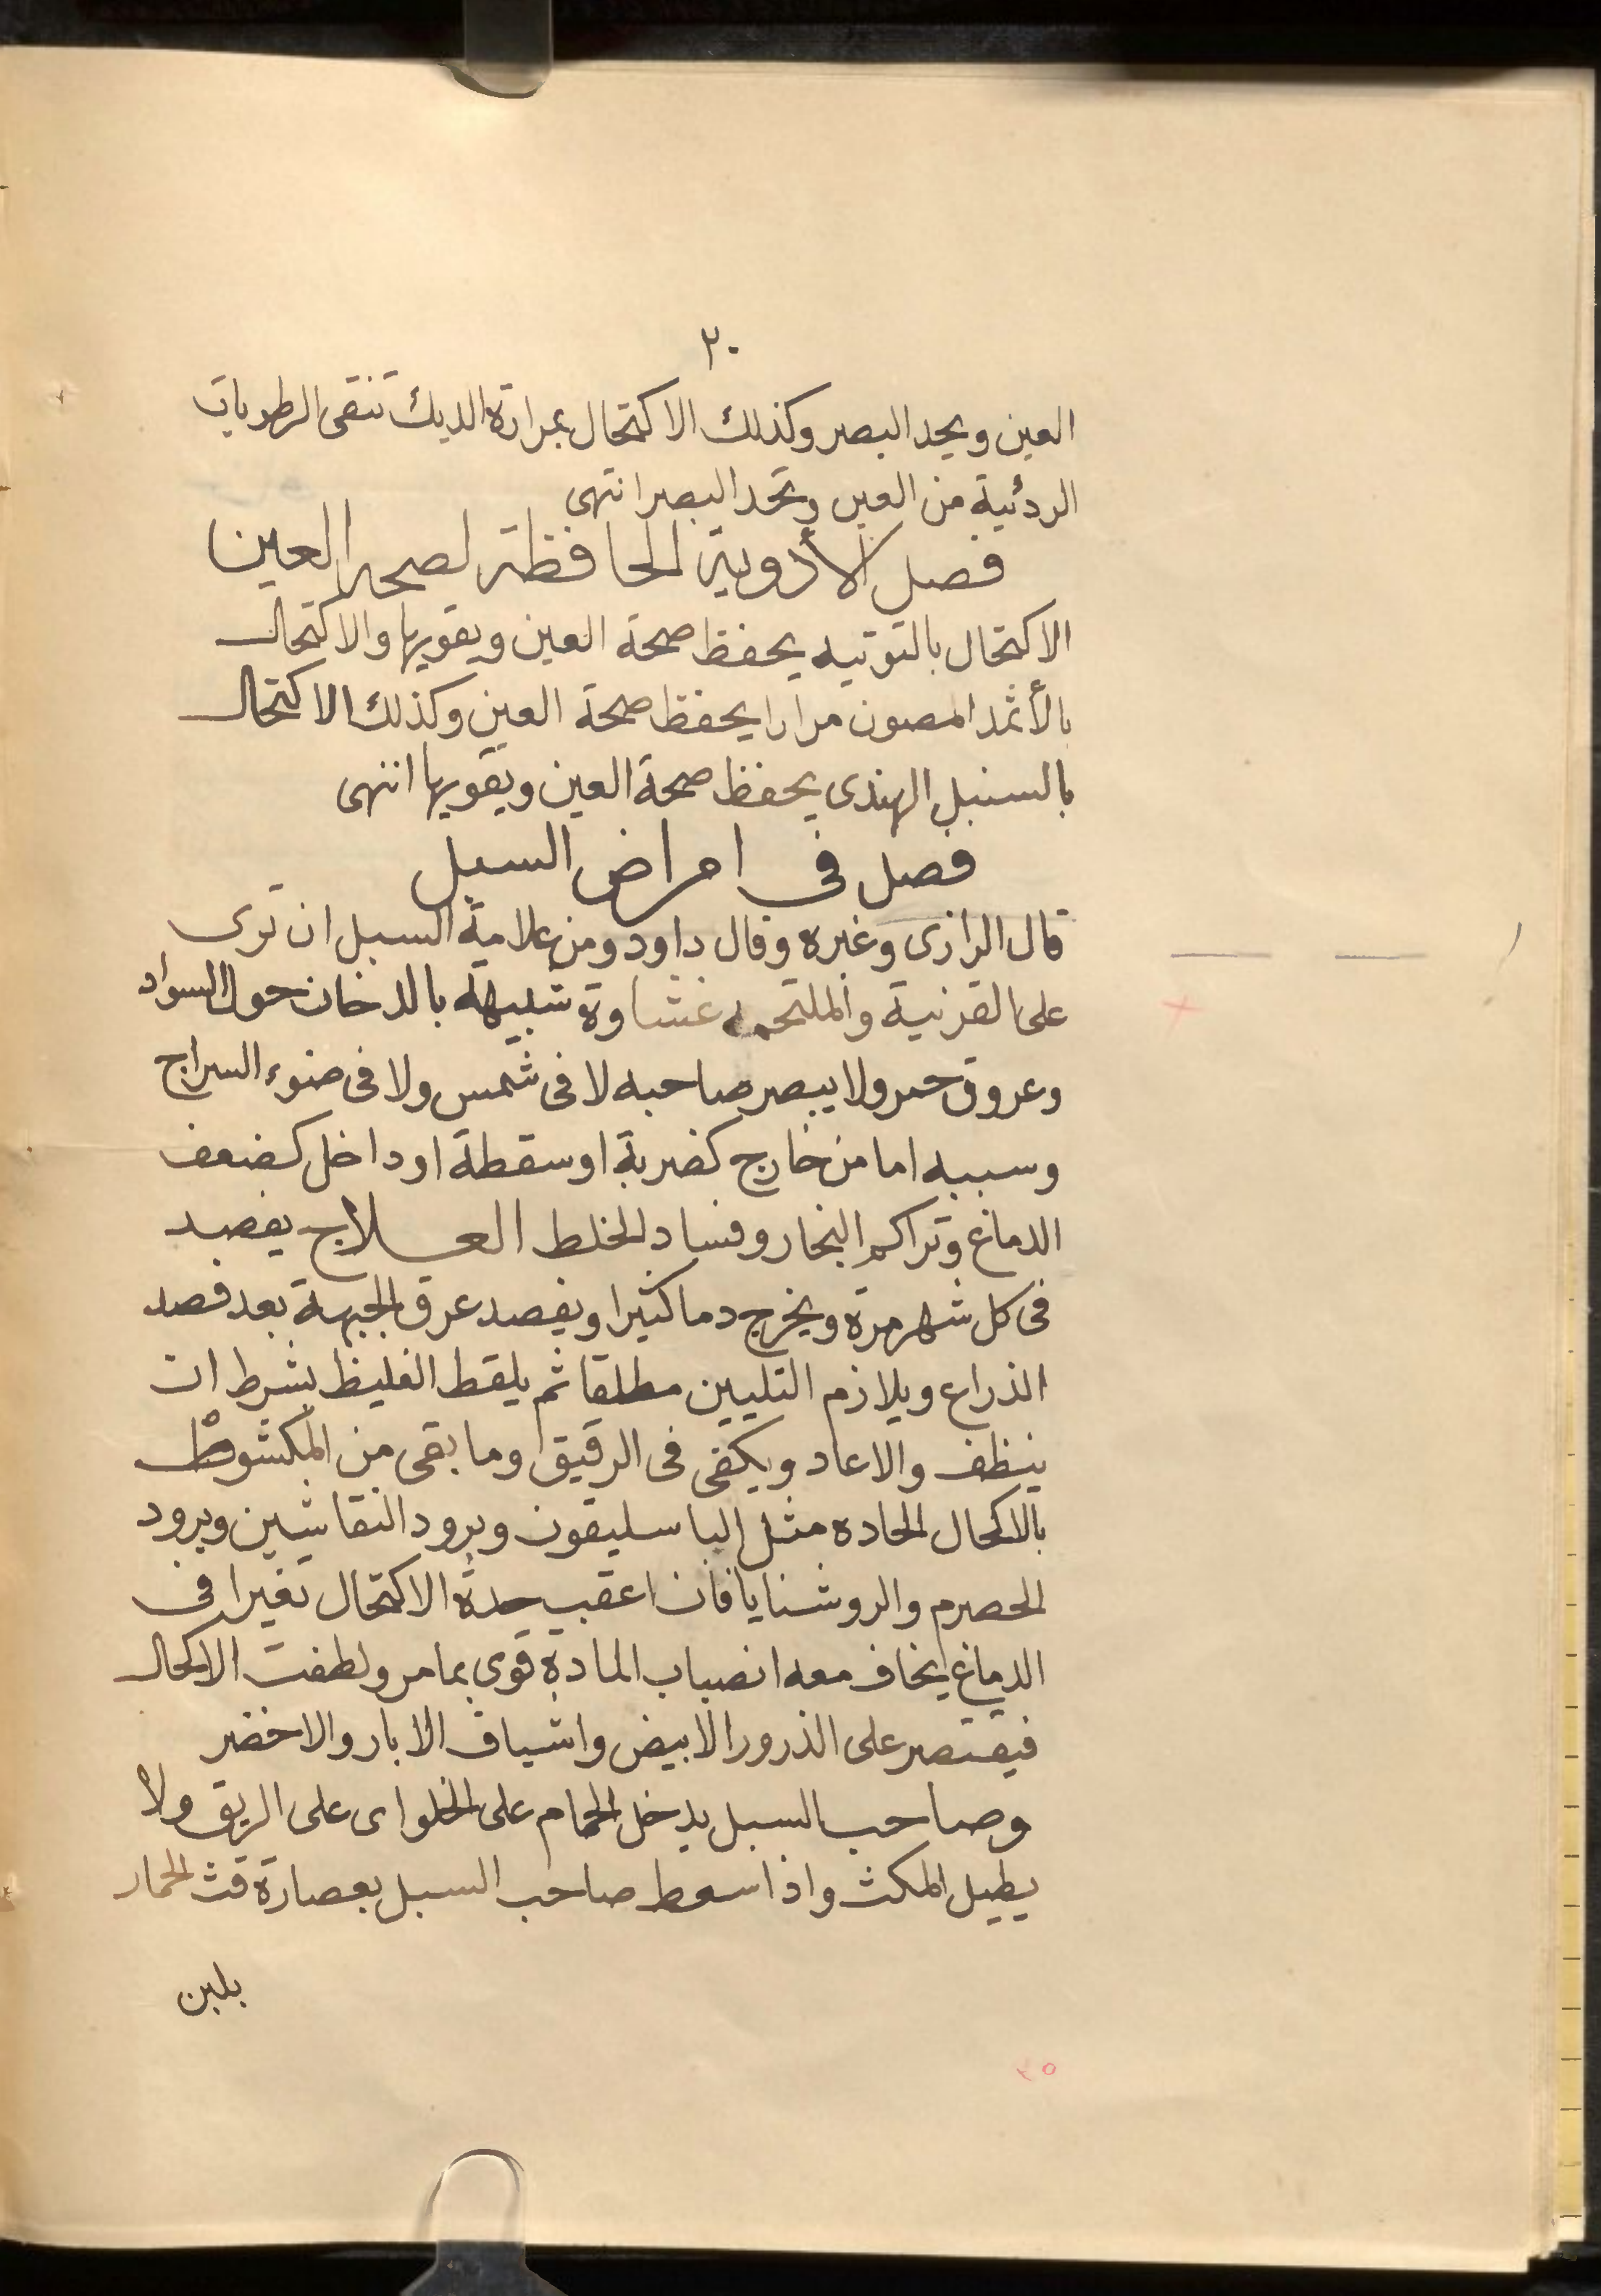 ٢٠
العين ويحد البصر وكذلك الاكتحال بمرارة الديك تنقى الرطوبات
الردئية من العين وتحد البصر انتهى
فصل الأدوية الحافظة لصحة العين
الاكتحال بالتوتيه يحفظ صحة العين ويقويها والاكتحال
بالأثمد المصون مرارا يحفظ صحة العين وكذلك الاكتحال
بالسنبل الهندى يحفظ صحة العين ويقويها انتهى
فصل فى امراض السبل
قال الرازى وغيره وقال داود ومن علامة السبل ان ترى
على القرنية والملتحمه غشاوة شبيهة بالدخان حول السواد
وعروق حمر ولا يبصر صاحبه لا فى شمس ولا فى ضوء السراج
وسببه اما من خارج كضربة او سقطة او داخل كضعف
الدماغ وتراكم البخار وفساد الخلط العلاج يفصد
فى كل شهر مرة ويخرج دما كثيرا ويفصد عرق الجبهة بعد فصد
الذراع ويلازم التليين مطلقا ثم يلقط الغليظ بشرط ان
ينظف والا عاد ويكفى فى الرقيق وما بقى من المكشوط
بالاكحال الحاده مثل الباسليقون وبرود النقاشين وبرود
الحصرم والروشنايا فان اعقب حدة الاكتحال تغيرا فى
الدماغ يخاف معه انصباب المادة قوى بما مر ولطفت الاكحال
فيقتصر على الذرور الابيض واشياف الابار والاخضر
وصاحب السبل يدخل الحمام على الخلو اى على الريق ولا
يطيل المكث واذا سعط صاحب السبل بعصارة قث الحمار
بلبن